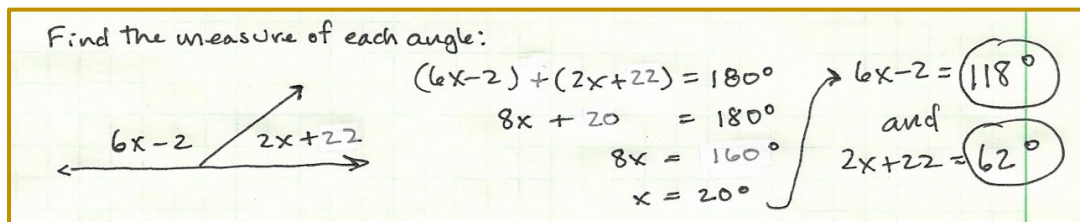 Find the measure of each angle:
6x-2
2x+22
(6x-2)+(2x+22) = 180°
8x + 20 = 180°
8x = 160°
x = 20°
6x-2 = 118°
and
2x+22 = 62°